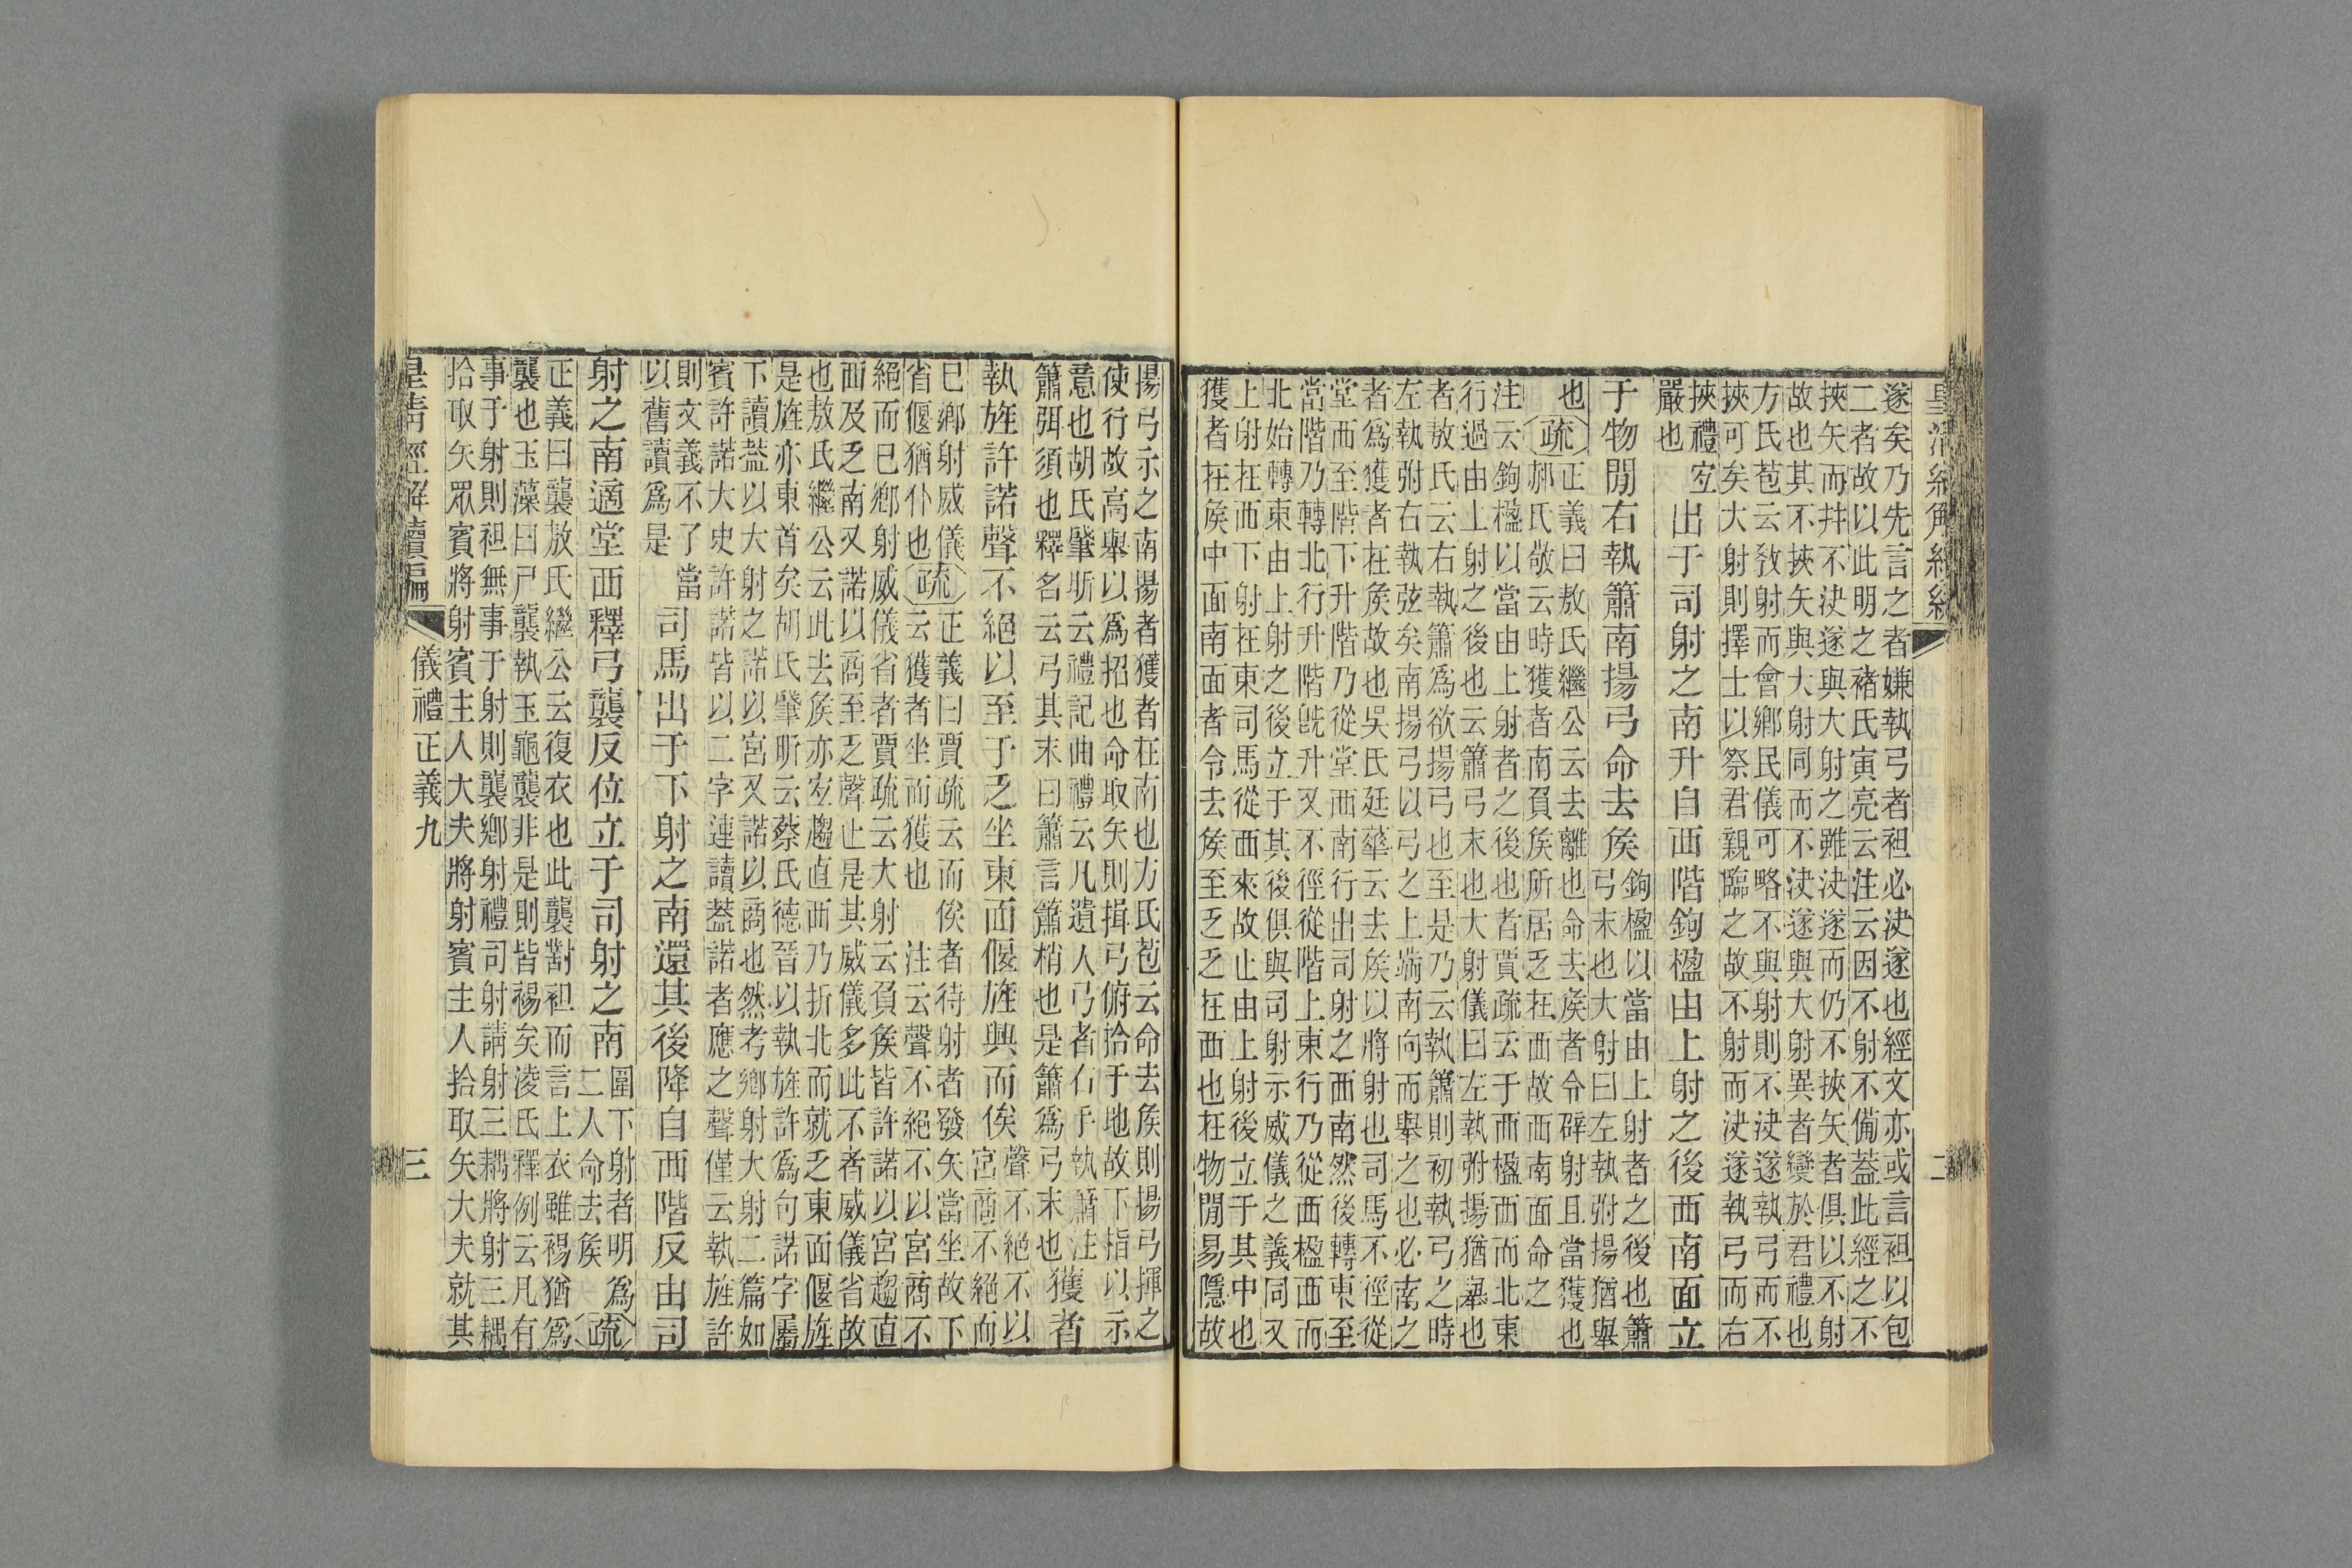 皇清經解續編 二
遂矣乃先言之者嫌執弓者袒必決遂也經文亦或言袒以包
二者故以此明之褚氏寅亮云注云因不射不備蓋此經之不
挾矢而幷不決遂與大射之雖決遂而仍不挾矢者俱以不射
故也其不挾矢與大射同而不決遂與大射異者變於君禮也
方氏苞云敎射而會鄉民儀可略不與射則不決遂執弓而不
挾可矣大射則擇士以祭君親臨之故不射而決遂執弓而右
挾禮宐
嚴也
出于司射之南升自西階鉤楹由上射之後西南面立
于物閒右執簫南揚弓命去矦
鉤楹以當由上射者之後也簫
弓末也大射曰左執弣揚猶舉
也
疏
正義曰敖氏繼公云去離也命去矦者令辟射且當獲也
郝氏敬云時獲者南負矦所居乏在西故西南面命之
注云鉤楹以當由上射者之後也者賈疏云于西楹西而北東
行過由上射之後也云簫弓末也大射儀曰左執弣揚猶舉也
者敖氏云右執簫爲欲揚弓也至是乃云執簫則初執弓之時
左執弣右執弦矣南揚弓以弓之上端南向而舉之也必南之
者爲獲者在矦故也吳氏廷華云去矦以將射也司馬不徑從
堂西至階下升階乃從堂西南行出司射之西南然後轉東至
當階乃轉北行升階旣升又不徑從階上東行乃從西楹西而
北始轉東由上射之後立于其後俱與司射示威儀之義同又
上射在西下射在東司馬從西來故止由上射後立于其中也
獲者在矦中面南面者令去矦至乏乏在西也在物閒易隱故
揚弓示之南揚者獲者在南也方氏苞云命去矦則揚弓揮之
使行故高舉以爲招也命取矢則揖弓俯拾于地故下指以示
意也胡氏肇昕云禮記曲禮云凡遺人弓者右手執簫注
簫弭須也釋名云弓其末曰簫言簫梢也是簫爲弓末也
獲者
執旌許諾聲不絕以至于乏坐東面偃旌興而俟
聲不絕不以
宮商不絕而
已鄉射威儀
省偃猶仆也
疏
正義曰賈疏云而俟者待射者發矢當坐故下
云獲者坐而獲也 注云聲不絕不以宮商不
絕而已鄉射威儀省者賈疏云大射云負矦皆許諾以宮趨直
西及乏南又諾以商至乏聲止是其威儀多此不者威儀省故
也敖氏繼公云此去矦亦宐趨直西乃折北而就乏東面偃旌
是旌亦東首矣胡氏肇昕云蔡氏德晉以執旌許爲句諾字屬
下讀蓋以大射之諾以宮又諾以商也然考鄉射大射二篇如
賓許諾大史許諾皆以二字連讀蓋諾者應之聲僅云執旌許
則文義不了當
以舊讀爲是
司馬出于下射之南還其後降自西階反由司
射之南適堂西釋弓襲反位立于司射之南
圍下射者明爲
二人命去矦
疏
正義曰襲敖氏繼公云復衣也此襲對袒而言上衣雖裼猶爲
襲也玉藻曰尸襲執玉龜襲非是則皆裼矣淩氏釋例云凡有
事于射則袒無事于射則襲鄉射禮司射請射三耦將射三耦
拾取矢眾賓將射賓主人大夫將射賓主人拾取矢大夫就其
皇清經解續編 儀禮正義九 三